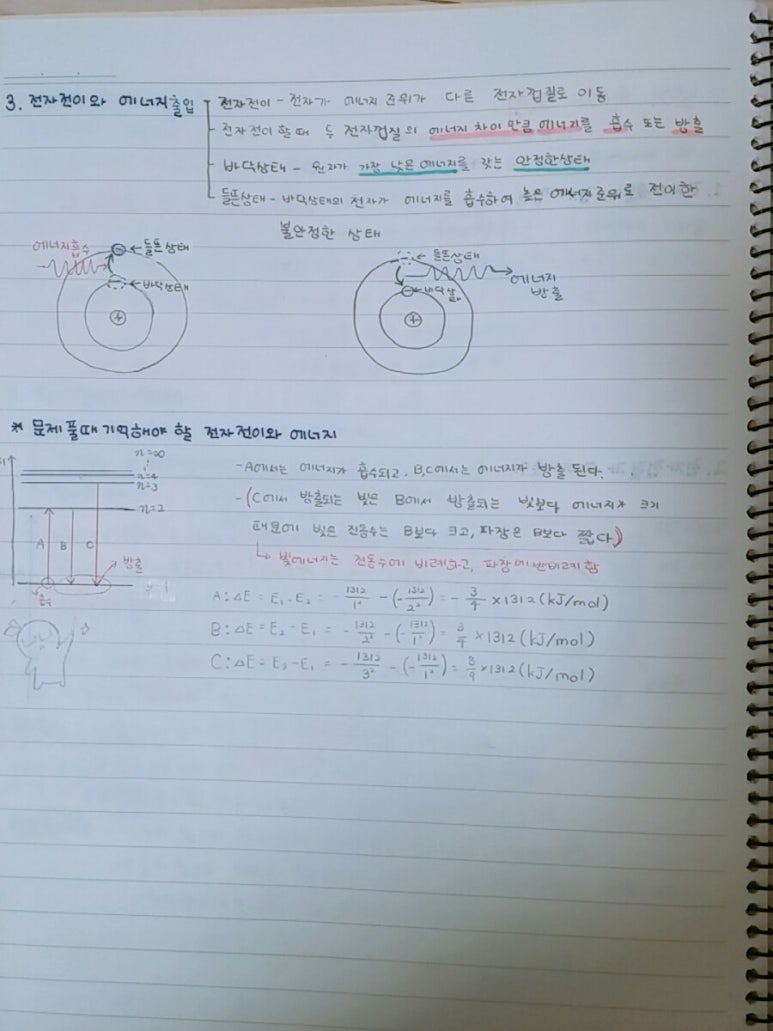 3. 전자전이와 에너지출입
전자전이 - 전자가 에너지 준위가 다른 전자껍질로 이동
전자전이 할 때 두 전자껍질의 에너지 차이 만큼 에너지를 흡수 또는 방출
바닥상태 - 원자가 가장 낮은 에너지를 갖는 안정한상태
들뜬상태 - 바닥상태의 전자가 에너지를 흡수하여 높은 에너지준위로 전이한
불안정한 상태
에너지흡수
⊖ ← 들뜬상태
← 바닥상태
⊕
← 들뜬상태
에너지
방출
⊖ ← 바닥상태
⊕
* 문제풀때 기억해야 할 전자전이와 에너지
n=∞
n=4
n=3
n=2
A B C
방출
흡수
- A에서는 에너지가 흡수되고. B,C에서는 에너지가 방출 된다.
- (C에서 방출되는 빛은 B에서 방출되는 빛보다 에너지가 크기
때문에 빛은 진동수는 B보다 크고, 파장은 B보다 짧다.)
↳ 빛에너지는 진동수에 비례하고, 파장에 반비례함
A : △E = E₁ - E₂ = - 1312/1² - (- 1312/2²) = - 3/4 × 1312 (kJ/mol)
B : △E = E₂ - E₁ = - 1312/2² - (- 1312/1²) = 3/4 × 1312 (kJ/mol)
C : △E = E₃ - E₁ = - 1312/3² - (- 1312/1²) = 8/9 × 1312 (kJ/mol)